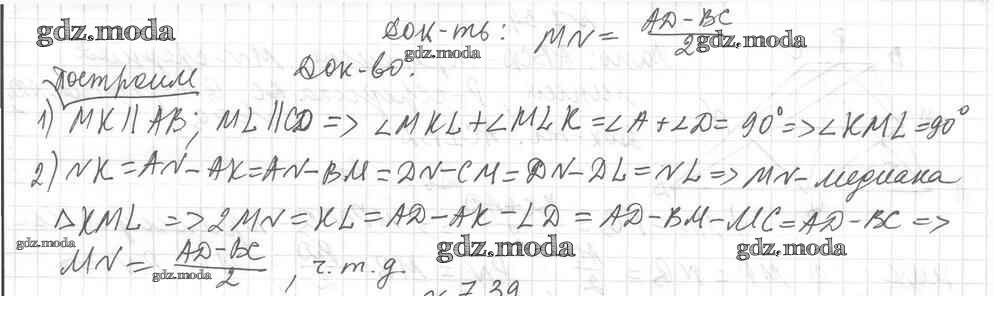 gdz.moda Док-ть: MN = (AD-BC)/2 gdz.moda
gdz.moda
Док-во:
Построим
1) MK || AB; ML || CD => ∠MKL + ∠MLK = ∠A + ∠D = 90° => ∠KML = 90°
2) NK = AN - AK = AN - BM = DN - CM = DN - DL = NL => MN - медиана
△KML => 2MN = KL = AD - AK - LD = AD - BM - MC = AD - BC =>
gdz.moda gdz.moda gdz.moda
MN = (AD-BC)/2, ч.т.д.
gdz.moda
7.39